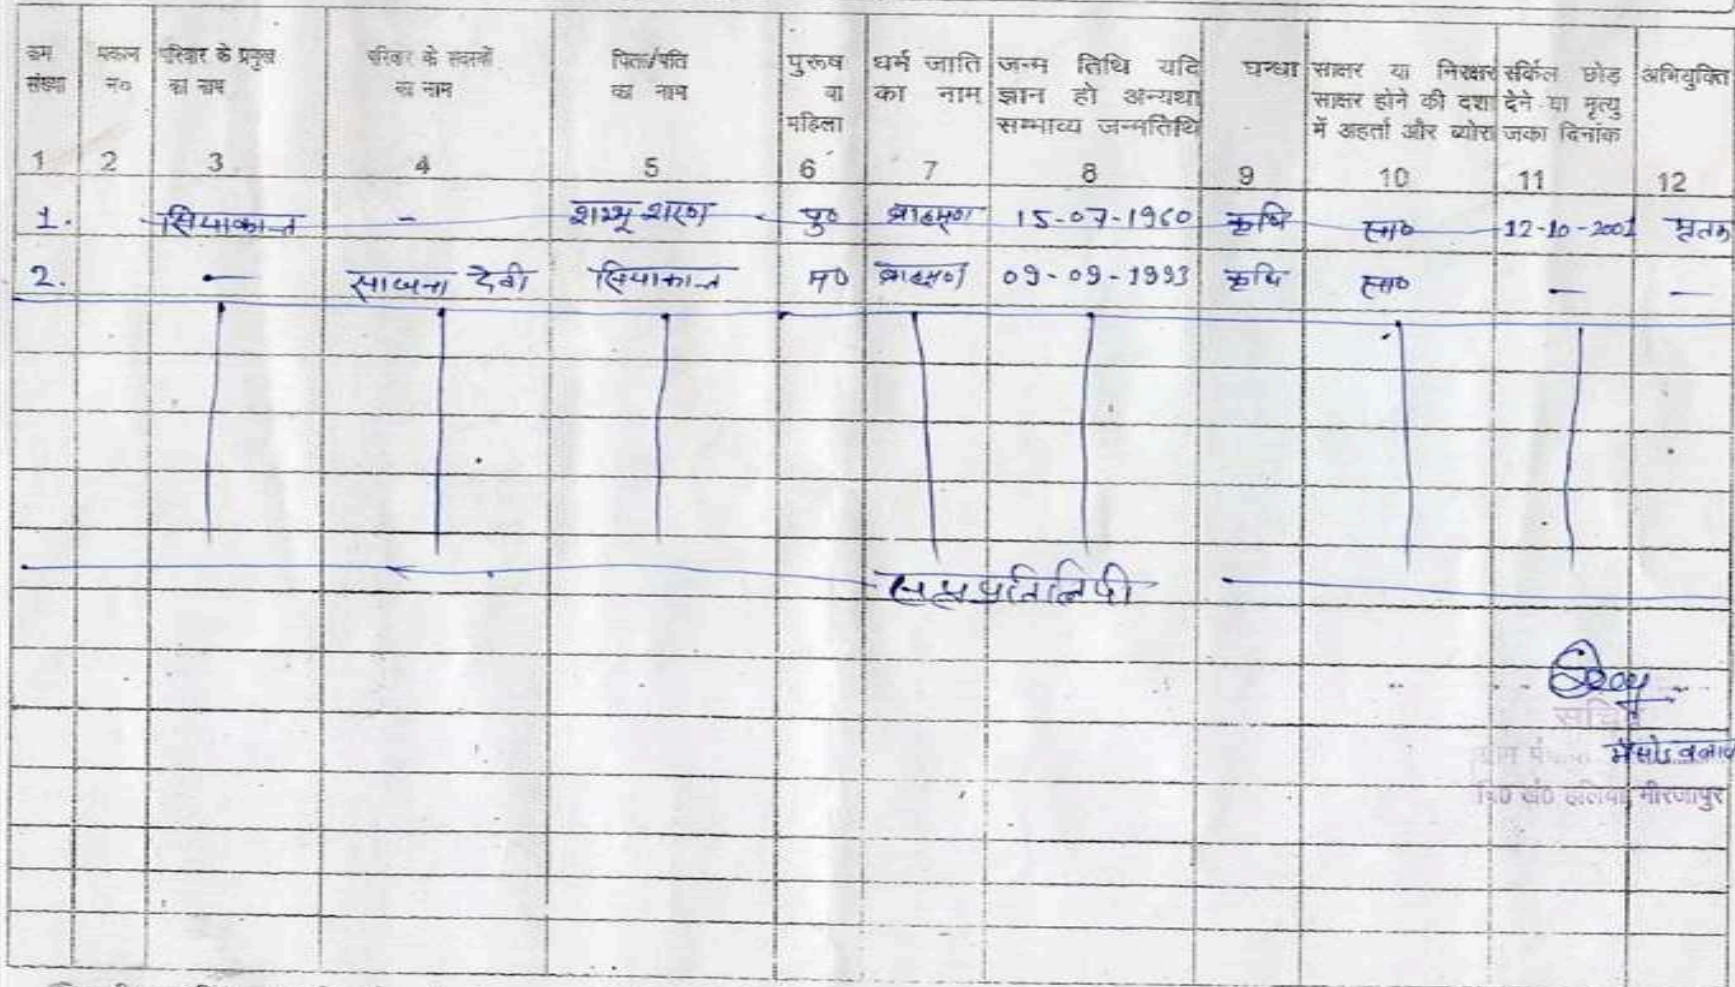 क्रम संख्या | मकान न० | परिवार के प्रमुख का नाम | परिवार के सदस्यों का नाम | पिता/पति का नाम | पुरूष या महिला | धर्म जाति का नाम | जन्म तिथि यदि ज्ञान हो अन्यथा सम्भाव्य जन्मतिथि | घन्धा | साक्षर या निरक्षर साक्षर होने की दशा में अहर्ता और ब्योरा | सर्किल छोड़ देने या मृत्यु जका दिनांक | अभियुक्ति
1 2 3 4 5 6 7 8 9 10 11 12
1. सियाकान्त - शम्भू शरण पु० ब्राहम्ण 15-07-1960 कृषि सा० 12-10-2001 मृतक
2. - साजना देवी सियाकान्त म० ब्राहम्ण 09-09-1993 कृषि सा० - -
सत्यप्रतिलिपी
सचिव
ग्राम
वि० खं० हलिया, मीरजापुर